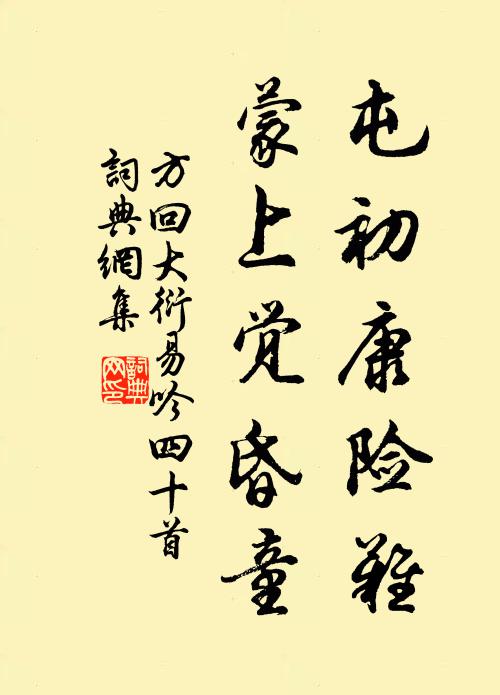 屯初康险難
蒙上觉昏童
方回大衍易吟四十首
詞典網集
詞典网印